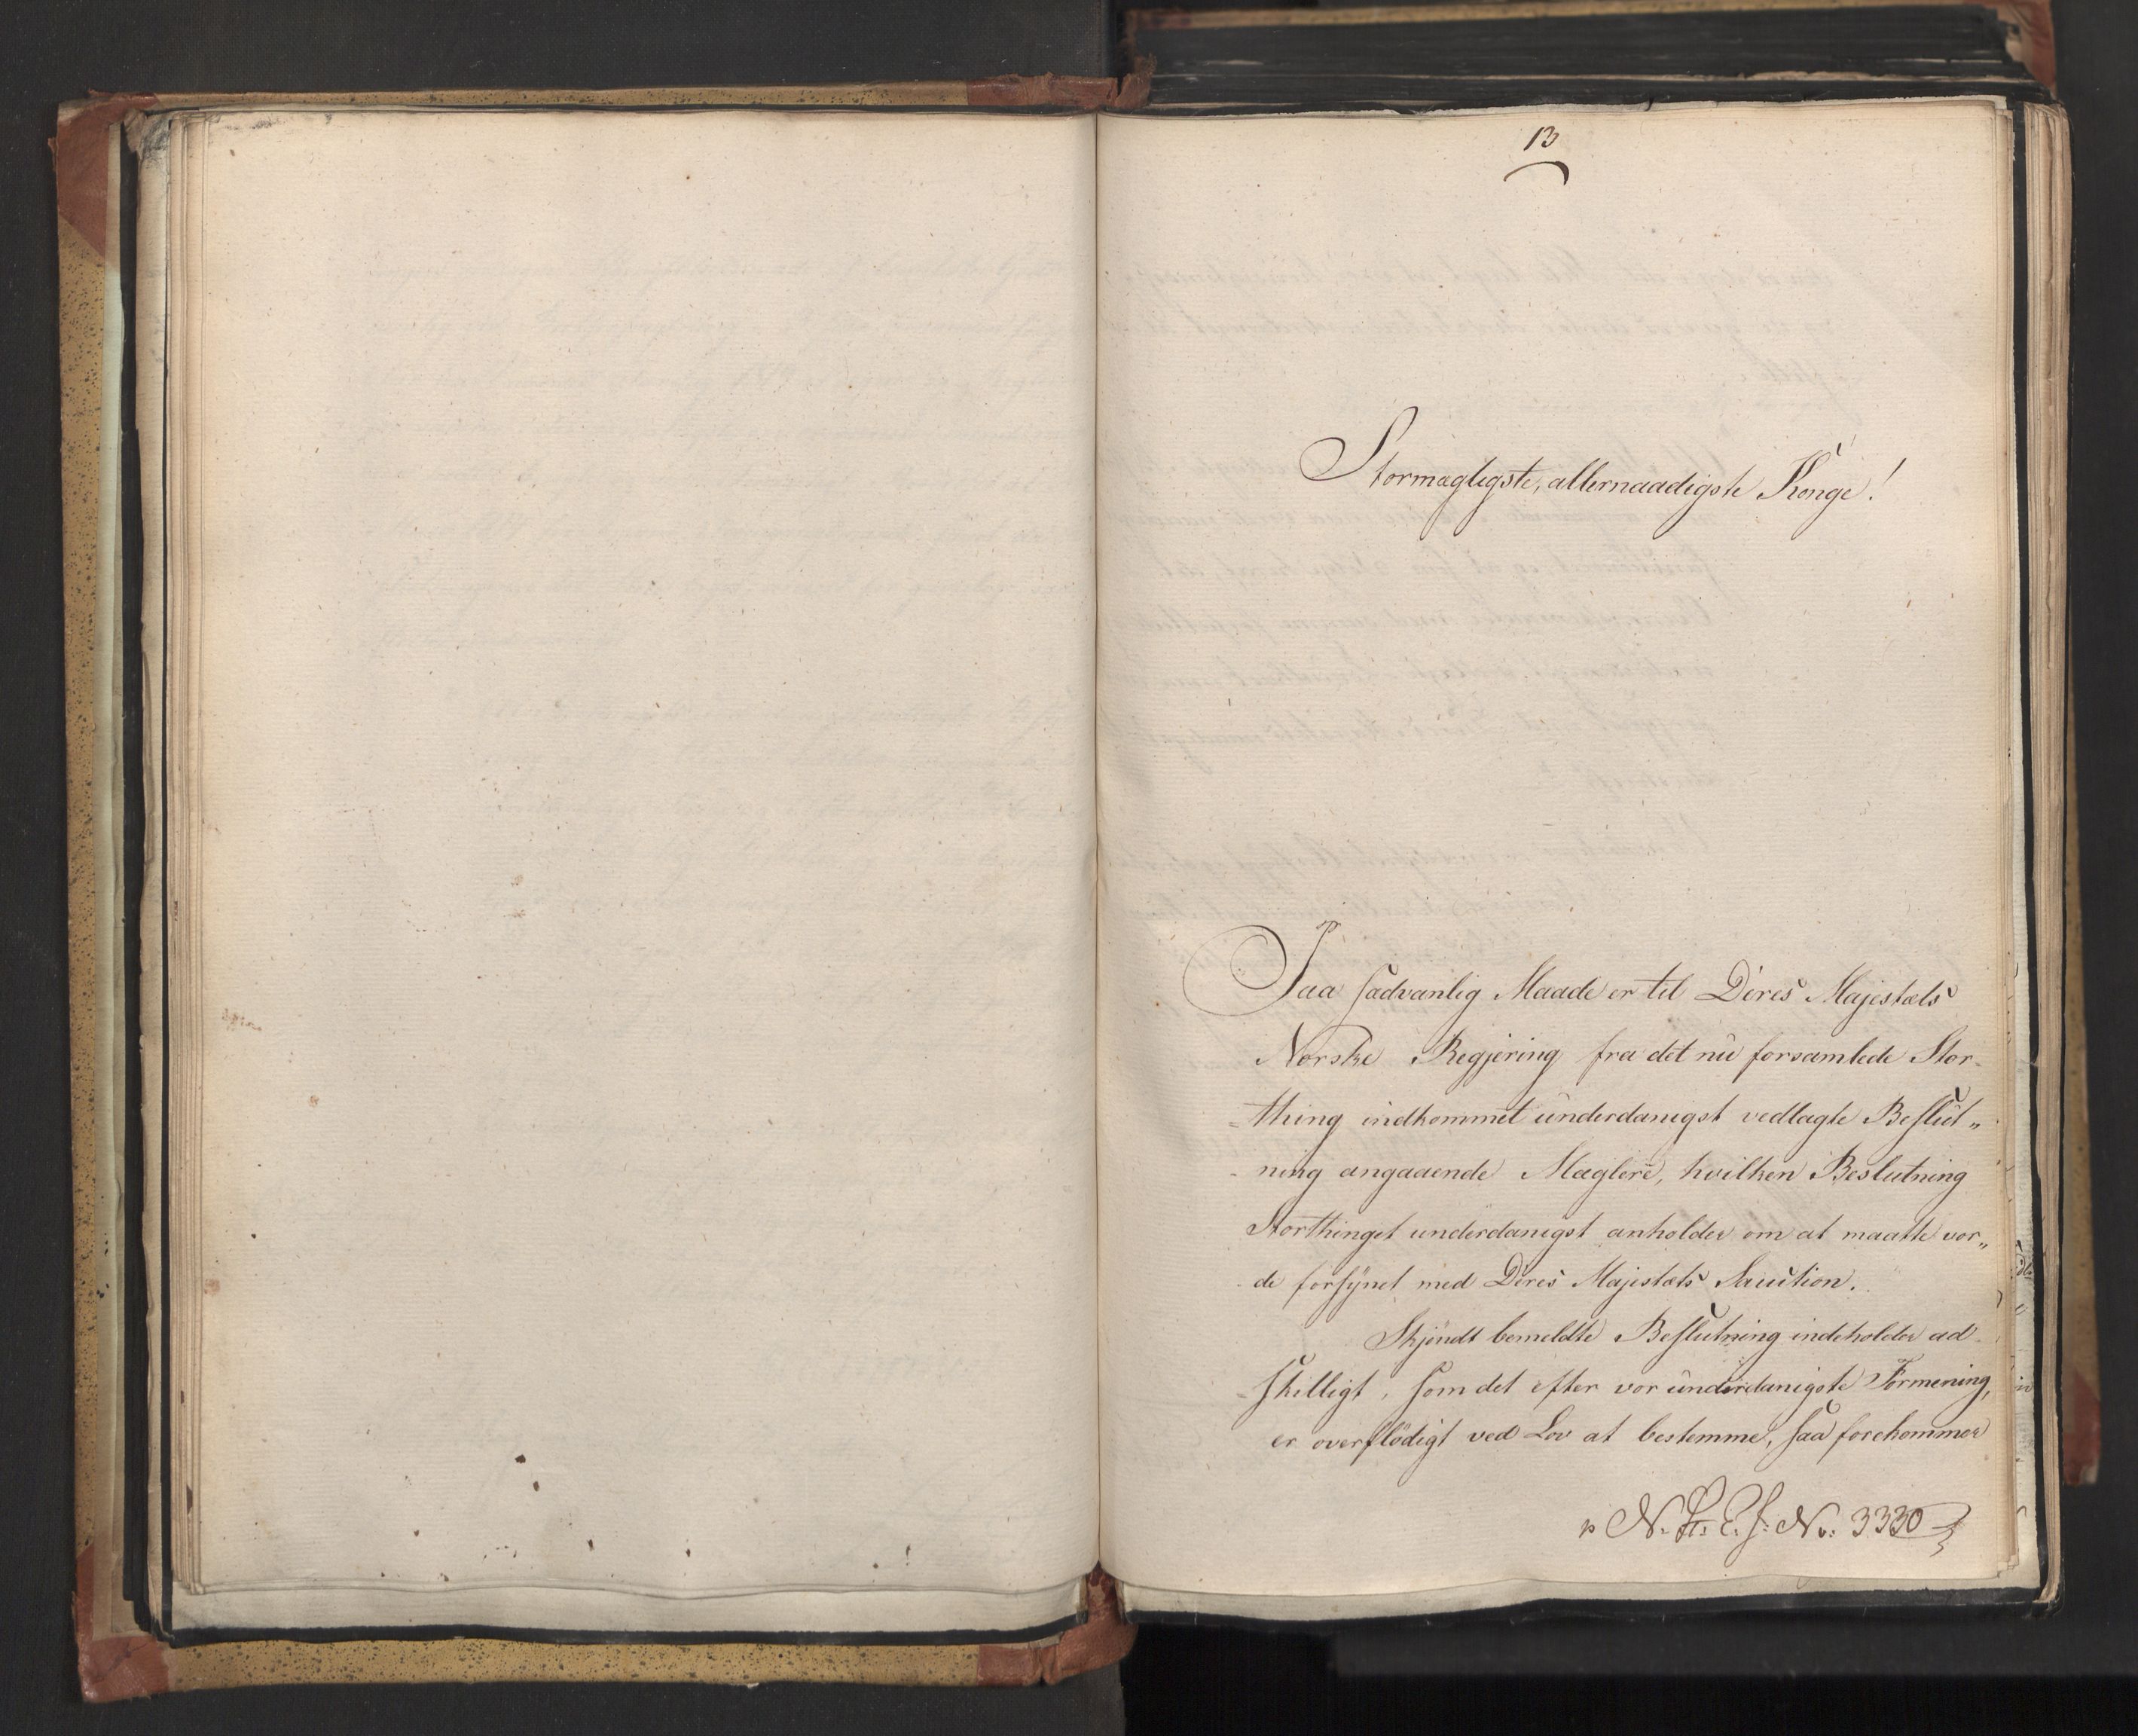 13
Stormægtigste, allernaadigste Konge!
Paa sædvanlig Maade er til Deres Majestæts
Norske Regjering fra det nu forsamlede Stor-
-thing indkommet underdanigst vedlagte Beslut„
-ning angaaende Mæglere, hvilken Beslutning
Storthinget underdanigst anholder om at maatte vor„
-de forsÿnet med Deres Majestæts Sanction.
Skjöndt bemeldte Beslutning indeholder ad-
-skilligt, som det efter vor underdanigste Formening,
er overflödigt ved Lov at bestemme, saa forekommer
No: 3330